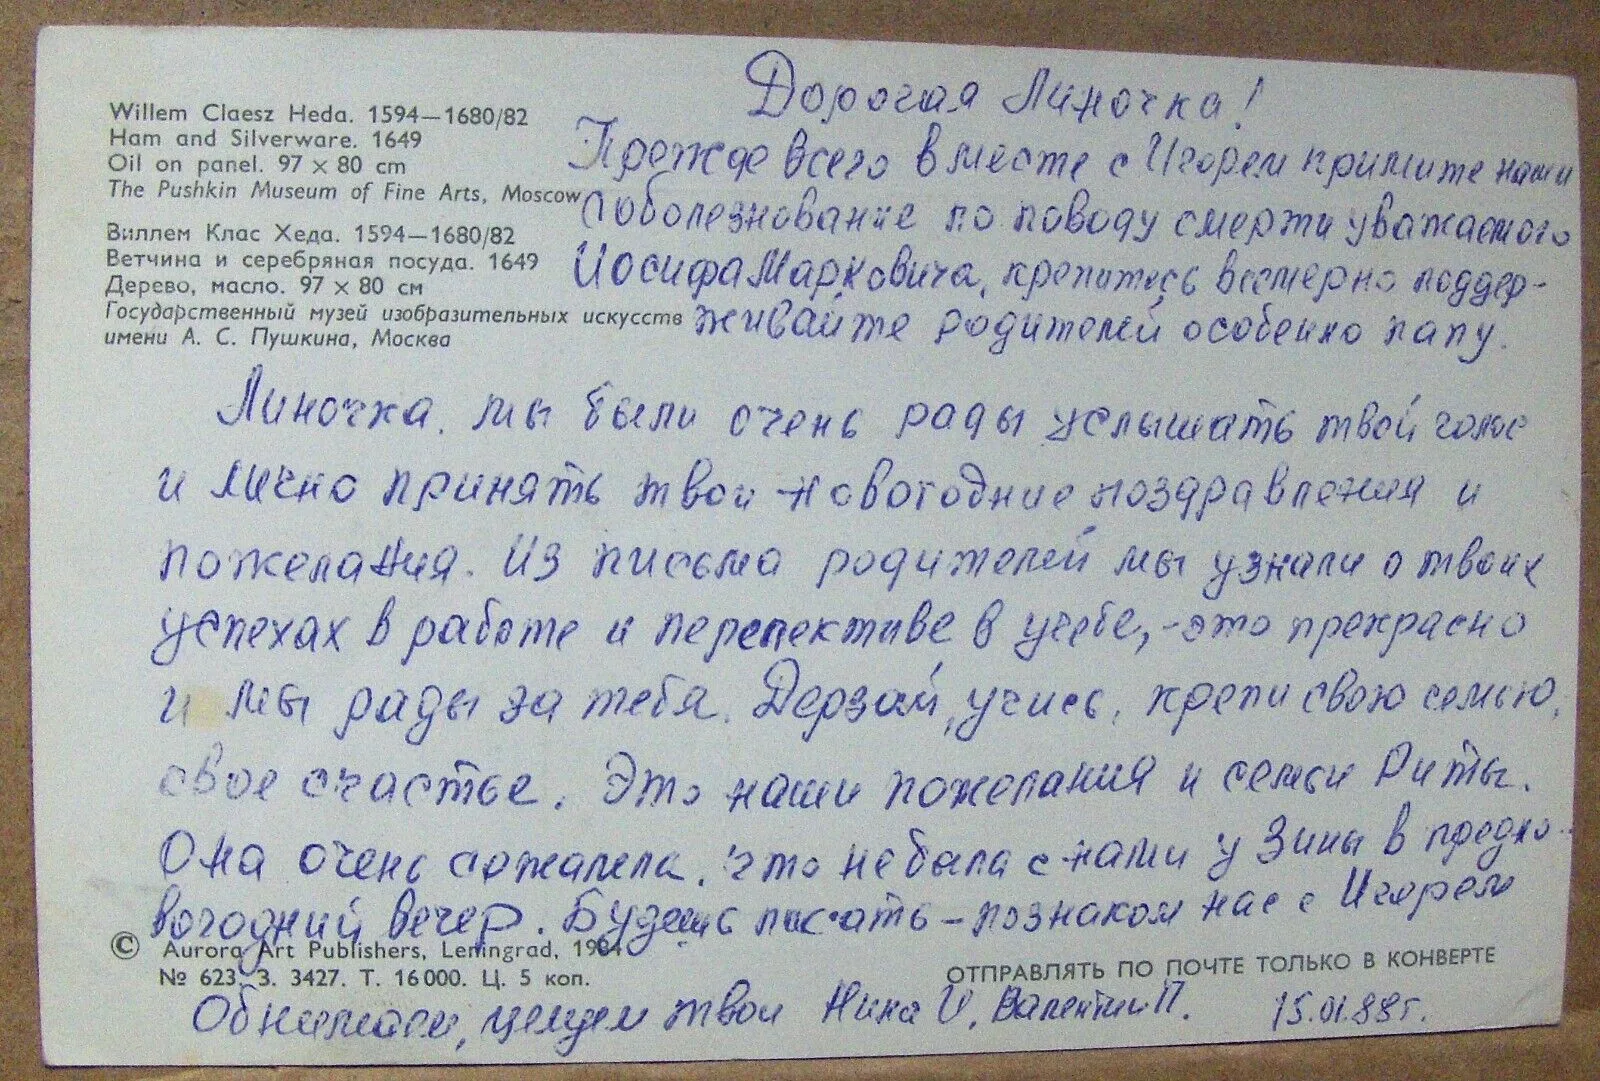 Willem Claesz Heda. 1594—1680/82
Ham and Silverware. 1649
Oil on panel. 97 × 80 cm
The Pushkin Museum of Fine Arts, Moscow
Виллем Клас Хеда. 1594—1680/82
Ветчина и серебряная посуда. 1649
Дерево, масло. 97 × 80 см
Государственный музей изобразительных искусств
имени А. С. Пушкина, Москва
Дорогая Линочка!
Прежде всего вместе с Игорем примите наши
соболезнование по поводу смерти уважаемого
Иосифа Марковича, крепитесь всемерно поддер-
живайте родителей особенно папу.
Линочка, мы были очень рады услышать твой голос
и лично принять твои новогодние поздравления и
пожелания. Из письма родителей мы узнали о твоих
успехах в работе и перспективе в учебе, - это прекрасно
и мы рады за тебя. Дерзай, учись, крепи свою семью,
свое счастье. Это наши пожелания и семьи Риты.
Она очень сожалела, что не была с нами у Зины в предно-
вогодний вечер. Будешь писать – познаком нас с Игорем
© Aurora Art Publishers, Leningrad, 1984
№ 623. З. 3427. Т. 16 000. Ц. 5 коп.
ОТПРАВЛЯТЬ ПО ПОЧТЕ ТОЛЬКО В КОНВЕРТЕ
Обнимаем, целуем твои Нина И, Валентин П. 15.01.88г.